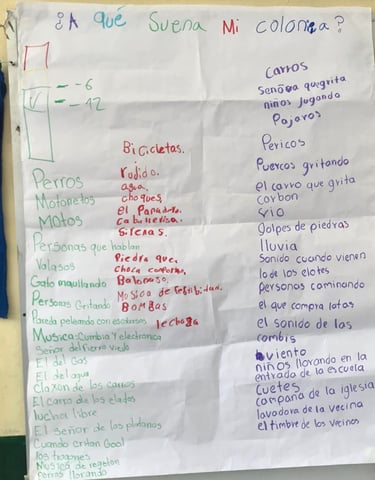 ¿A qué Suena Mi colonia?
- - 6
- - 12
Perros
Motonetos
Motos
Personas que hablan
Valasos
Gato maullando
Personas Gritando
Pareda peleando con escalones
Musica: Cumbia y electronica
Señor del fierro viejo
El del Gas
El del agua
Claxon de los carros
El carro de los elotes
lucha libre
El señor de los platanos
Cuando gritan Gool
los trazones
Musica de regeton
perros llorando
BiCicletas.
rudido.
agua
choques.
el Panadero.
Sirenas.
Piedra que.
choca
Balonaso.
Mosica de
BOMBAS
lechoza
carros
Señora que grita
niños jugando
Pajaros
Pericos
Puercos gritando
el carro que grita
carbon
rio
Golpes de piedras
lluvia
Sonido cuando vienen
lo de los elotes
Personas caminando
el que compra latas
el sonido de las
combis
viento
niños llorando en la
entrada de la escuela
Cuetes
campana de la iglesia
lavadora de la vecina
el timbre de los vecinos